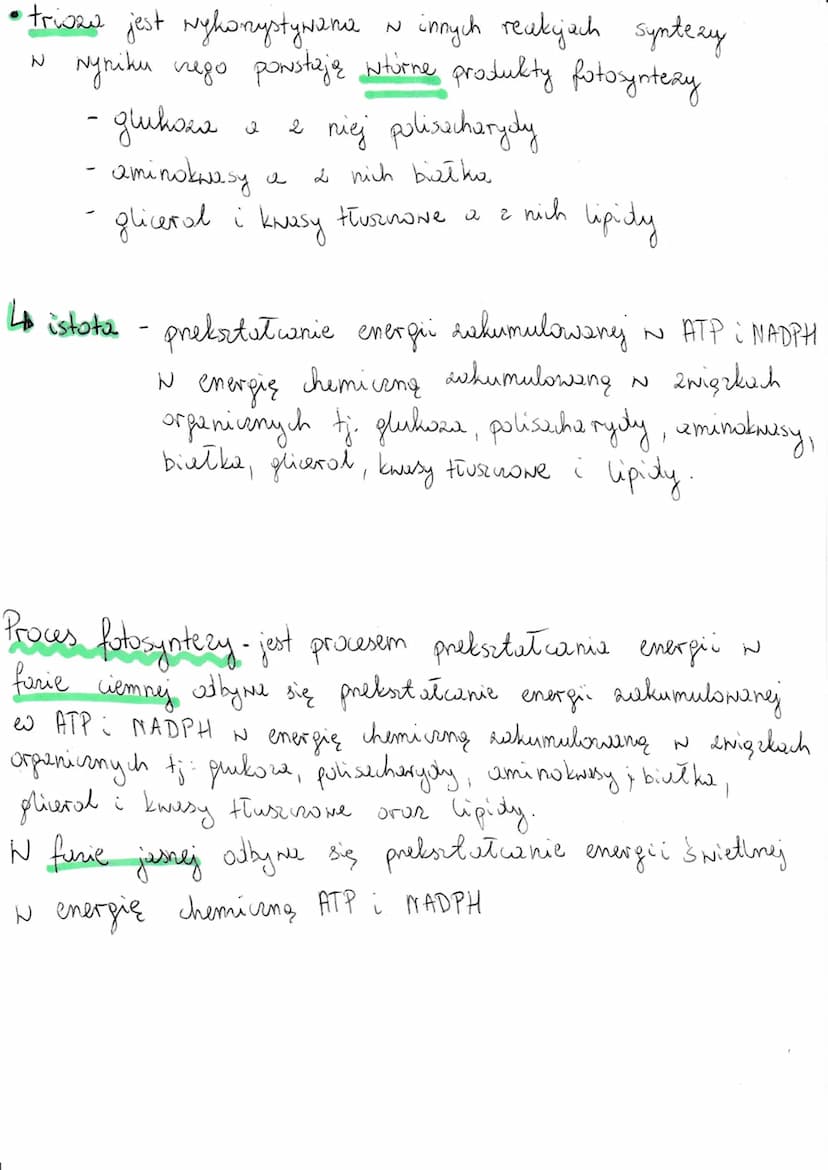 • trioza jest wykorzystywana w innych reakcjach syntezy
w wyniku czego powstają wtórne produkty fotosyntezy
- glukoza a z niej polisacharydy
- aminokwasy a z nich białka
- glicerol i kwasy tłuszczowe a z nich lipidy
↳ istota - przekształcanie energii zakumulowanej w ATP i NADPH
w energię chemiczną zakumulowaną w związkach
organicznych tj. glukoza, polisacharydy, aminokwasy,
białka, glicerol, kwasy tłuszczowe i lipidy.
Proces fotosyntezy - jest procesem przekształcania energii w
fazie ciemnej odbywa się przekształcanie energii zakumulowanej
w ATP i NADPH w energię chemiczną zakumulowaną w związkach
organicznych tj: glukoza, polisacharydy, aminokwasy i białka,
glicerol i kwasy tłuszczowe oraz lipidy.
W fazie jasnej odbywa się przekształcanie energii świetlnej
w energię chemiczną ATP i NADPH